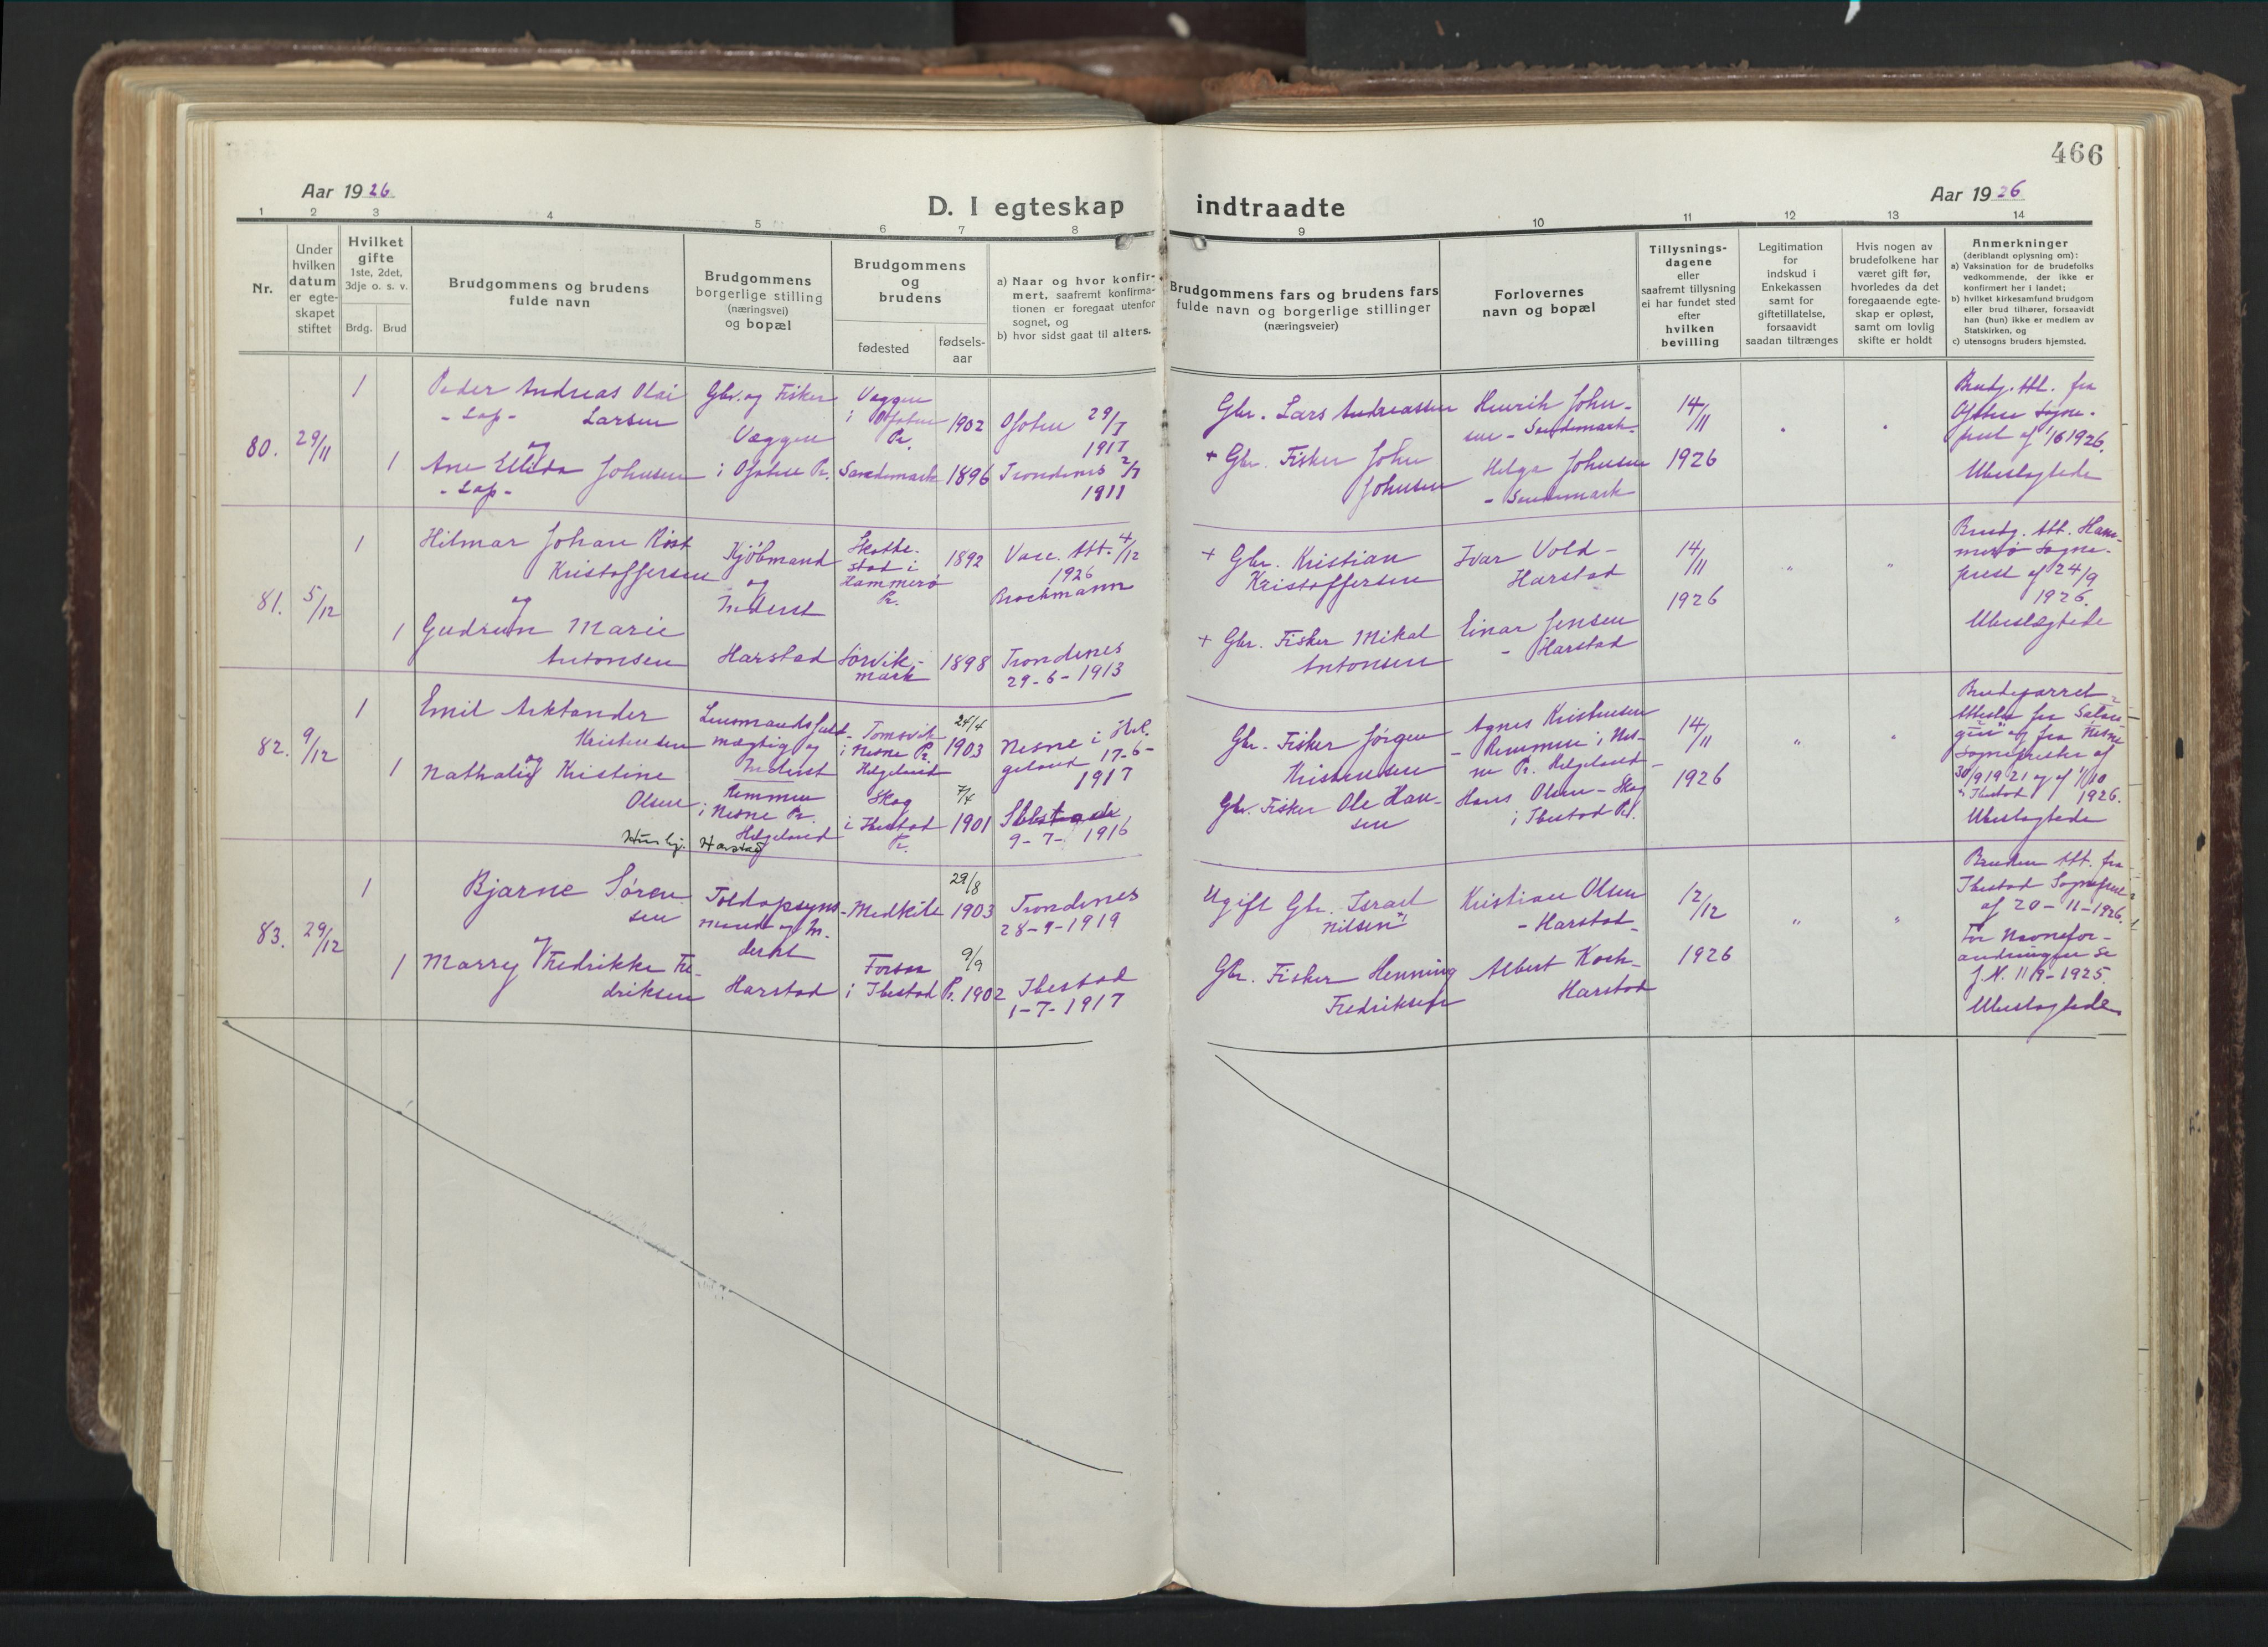 466
Aar 1926
Aar 1926
D. I egteskap indtraadte
1 2 3 4 5 6 7 8 9 10 11 12 13 14
Nr.
Under
hvilken
datum
er egte-
skapet
stiftet
Hvilket
gifte
1ste, 2det,
3dje o. s. v.
Brdg. Brud
Brudgommens og brudens
fulde navn
Brudgommens
borgerlige stilling
(næringsvei)
og bopæl
Brudgommens
og
brudens
fødested
fødsels-
aar
a) Naar og hvor konfir-
mert, saafremt konfirma-
tionen er foregaat utenfor
sognet, og
b) hvor sidst gaat til alters.
Brudgommens fars og brudens fars
fulde navn og borgerlige stillinger
(næringsveier)
Forlovernes
navn og bopæl
Tillysnings-
dagene
eller
saafremt tillysning
ei har fundet sted
efter
hvilken
bevilling
Legitimation
for
indskud i
Enkekassen
samt for
giftetillatelse,
forsaavidt
saadan tiltrænges
Hvis nogen av
brudefolkene har
været gift før,
hvorledes da det
foregaaende egte-
skap er opløst,
samt om lovlig
skifte er holdt
Anmerkninger
(deriblandt oplysning om):
a) Vaksination for de brudefolks
vedkommende, der ikke er
konfirmert her i landet;
b) hvilket kirkesamfund brudgom
eller brud tilhører, forsaavidt
han (hun) ikke er medlem av
Statskirken, og
c) utensogns bruders hjemsted.
80.
29/11
1
1
Peder Andreas Olai
- Lap - Larsen
og
Ane Ellida Johnsen
- Lap -
Gbr. og Fisker
Væggen
i Ofoten Pr.
Væggen
i Ofoten
Pr.
1902
Sandemark 1896
Ofoten 29/7
1917
Trondenes 2/7
1911
Gbr. Lars Andreassen
+ Gbr. Fisker John
Johnsen
Henrik John-
sen - Sandemark
Helge Johnsen
- Sandemark
14/11
1926
Brudg. Att. fra
Ofoten Sogne-
prest af 1/6 1926.
Ubeslægtede
81.
5/12
1
1
Hilmar Johan Rist
Kristoffersen
og
Gudrun Marie
Antonsen
Kjøbmand
og
Inderst
Harstad
Skotte-
stad i
Hammerø
Pr.
1892
Sørvik-
mark
1898
Vacc. Att. 4/12
1926
Brochmann
Trondenes
29-6-1913
+ Gbr. Kristian
Kristoffersen
+ Gbr. Fisker Mikal
Antonsen
Ivar Vold -
Harstad
Einar Jensen
- Harstad
14/11
1926
" "
Brudg. Att. Ham-
merø Sogne-
prest af 24/9
1926.
Ubeslægtede
82.
9/12
1
1
Emil Arktander
Kristensen
og
Nathalie Kristine
Olsen
Lensmandsfuld-
mægtig og
Inderst
Remmen
i Nesne Pr.
Helgeland
Harstad
Tomsvik
i Nesne Pr.
Helgeland
24/4
1903
Skog
i Ibestad
Pr.
7/4
1901
Nesne i Hel-
geland 17-6-
1917
Ibestad
9-7-1916
Gbr. Fisker Jørgen
Kristensen
Gbr. Fisker Ole Han-
sen
Agnes Kristensen
- Remmen i Nes-
ne Pr. Helgeland -
Hans Olsen - Skog
i Ibestad Pr.
14/11
1926
" "
Brudeparret
Attester fra Salan-
gen og fra Nesne
Sogneprester af
30/9 1921 og af 1/10
Ibestad 1926.
Ubeslægtede
83.
29/12
1
1
Bjarne Søren
sen
og
Marry Fredrikke Fre-
driksen
Toldopsyns-
mand og In-
derst
Harstad
Medkile
29/8
1903
Forsaa
i Ibestad Pr.
9/9
1902
Trondenes
28-9-1919
Ibestad
1-7-1917
Ugift Gbr. Israel
Nilsen
Gbr. Fisker Henning
Fredriksen
Kristian Olsen
- Harstad -
Albert Koch -
Harstad
12/12
1926
" "
Bruden Att. fra
Ibestad Sogneprest
af 20-11-1926.
For Navnefor-
andringen Se
J.N. 1119-1925.
Ubeslægtede